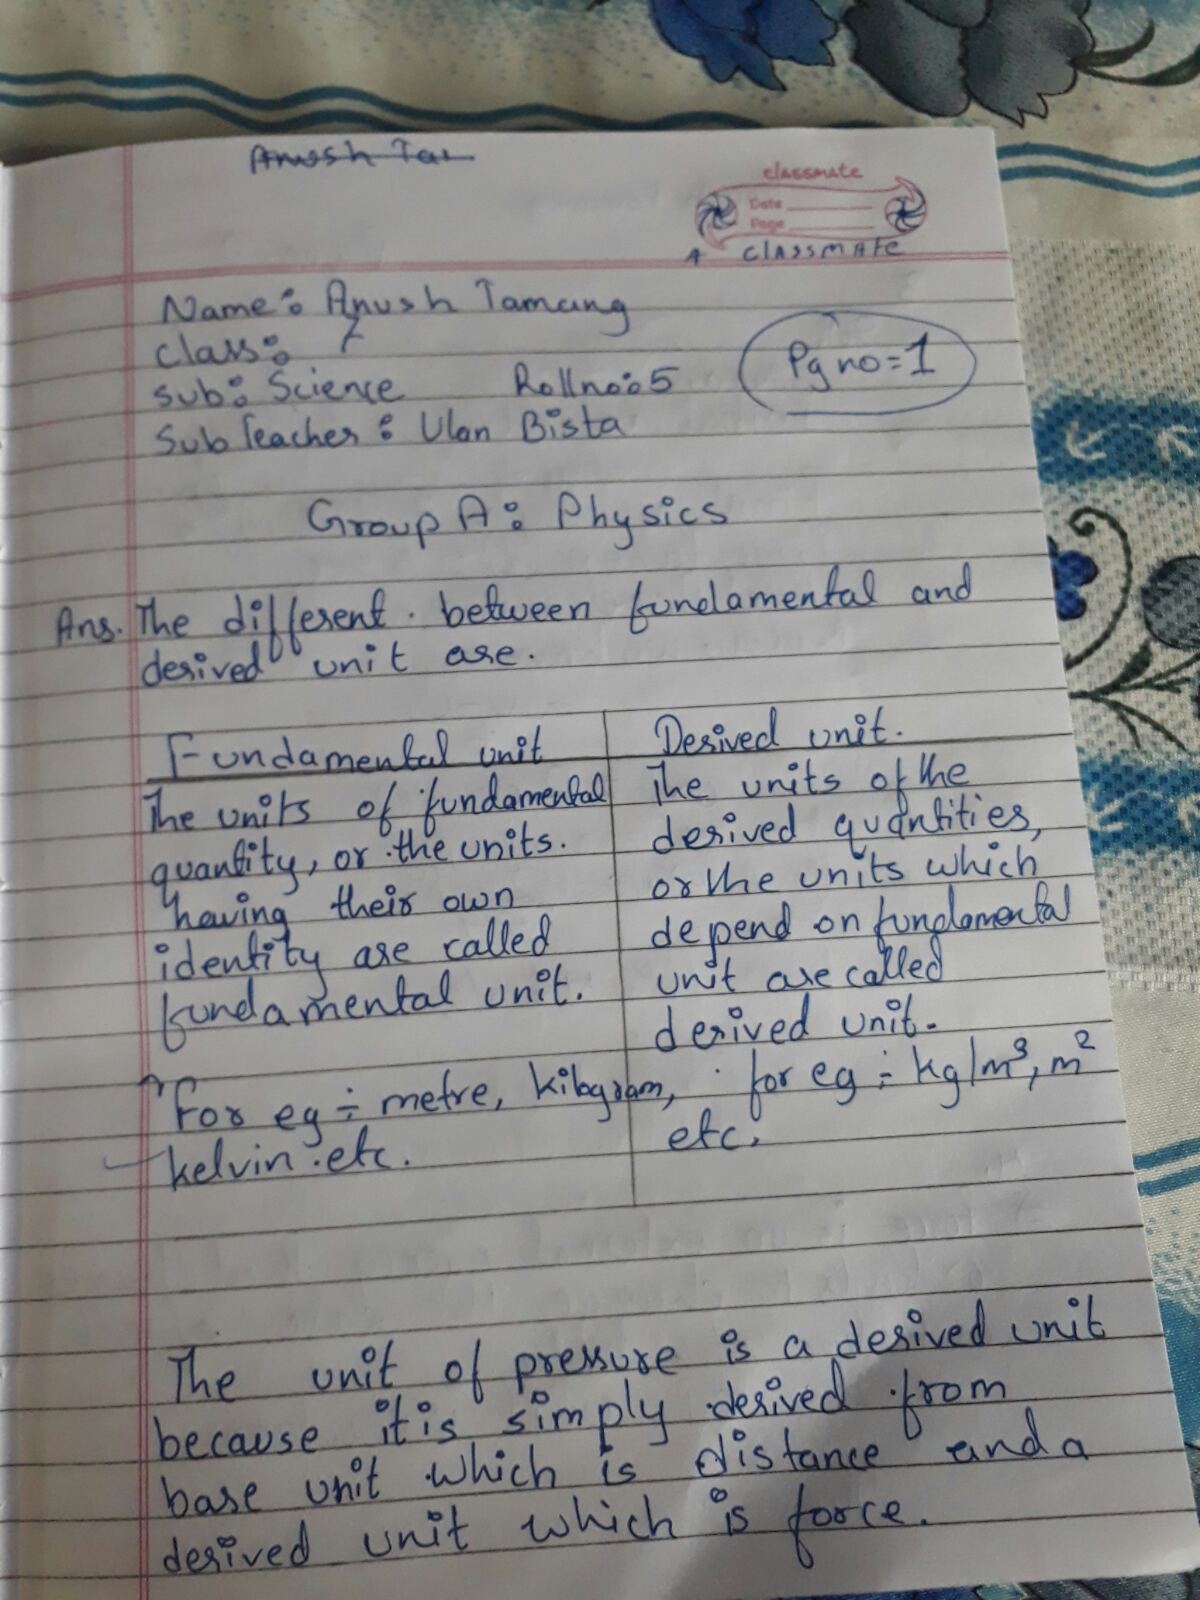 Anush Ta
classmate
Date
Page
A classmate
Name: Anush Tamang
class: 7
sub: Science Roll no: 5
Pg no = 1
Sub Teacher: Ulan Bista
Group A: Physics
Ans. The different between fundamental and
derived unit are.
Fundamental unit
The units of fundamental
quantity, or the units.
having their own
identity are called
fundamental unit.
For eg ÷ metre, kilogram,
kelvin etc.
Derived unit.
The units of the
derived quantities,
or the units which
depend on fundamental
unit are called
derived unit.
for eg ÷ kg/m³, m²
etc.
The unit of pressure is a derived unit
because it is simply derived from
base unit which is distance and a
derived unit which is force.